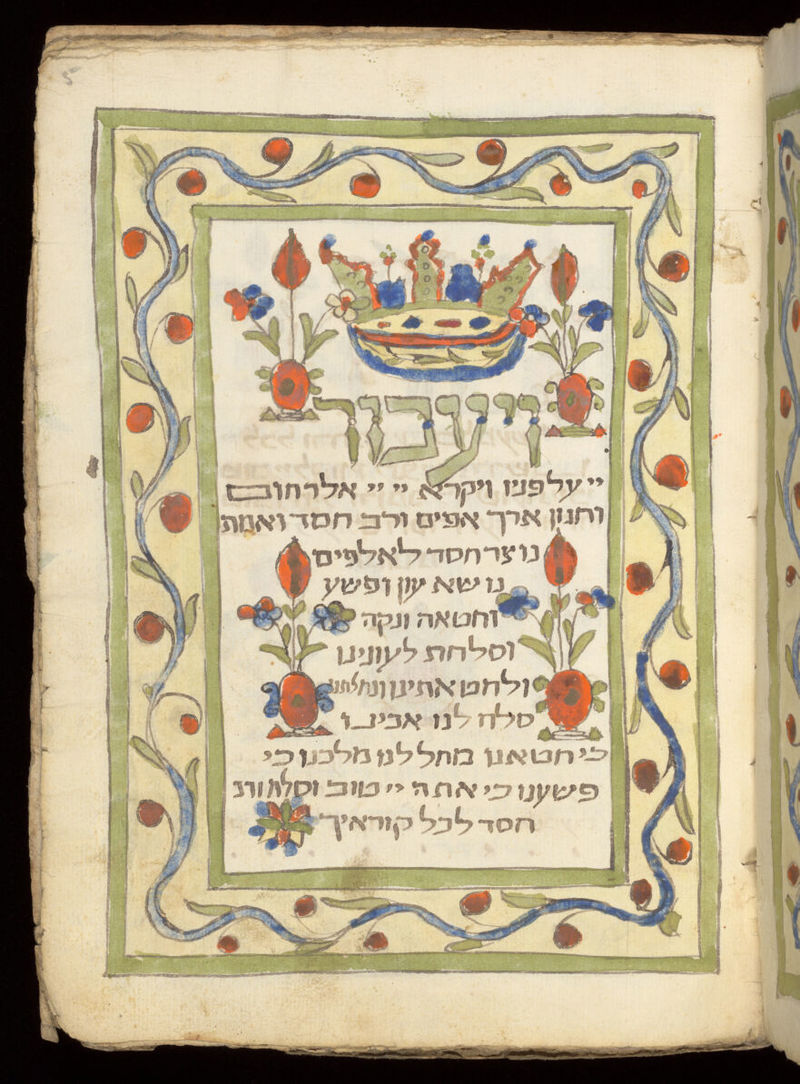 5
ויעבור
יי על פניו ויקרא יי יי אל רחום
וחנון ארך אפים ורב חסד ואמת
נוצר חסד לאלפים
נושא עון ופשע
וחטאה ונקה
וסלחת לעונינו
ולחטאתינו ונחלתנו
סלח לנו אבינו
כי חטאנו מחל לנו מלכנו כי
פשענו כי אתה יי טוב וסלח ורב
חסד לכל קוראיך